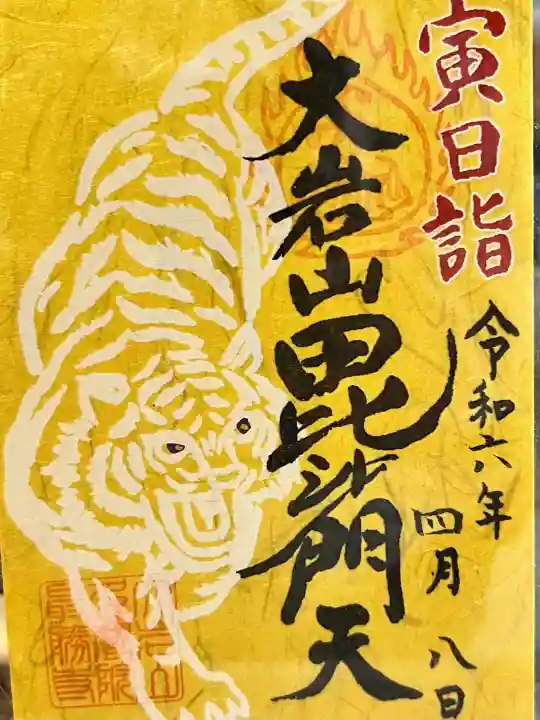 寅日詣
令和六年
四月
八日
大岩山毘沙門天